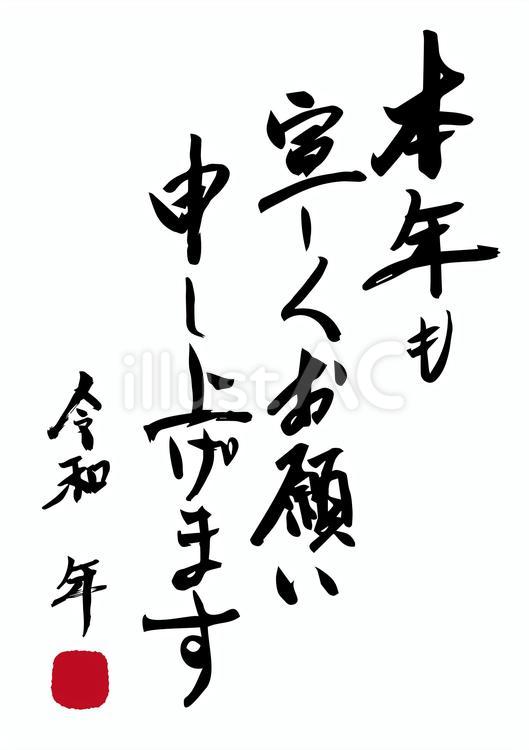 本年も
宜しくお願い
申し上げます
令和 年
illustAC